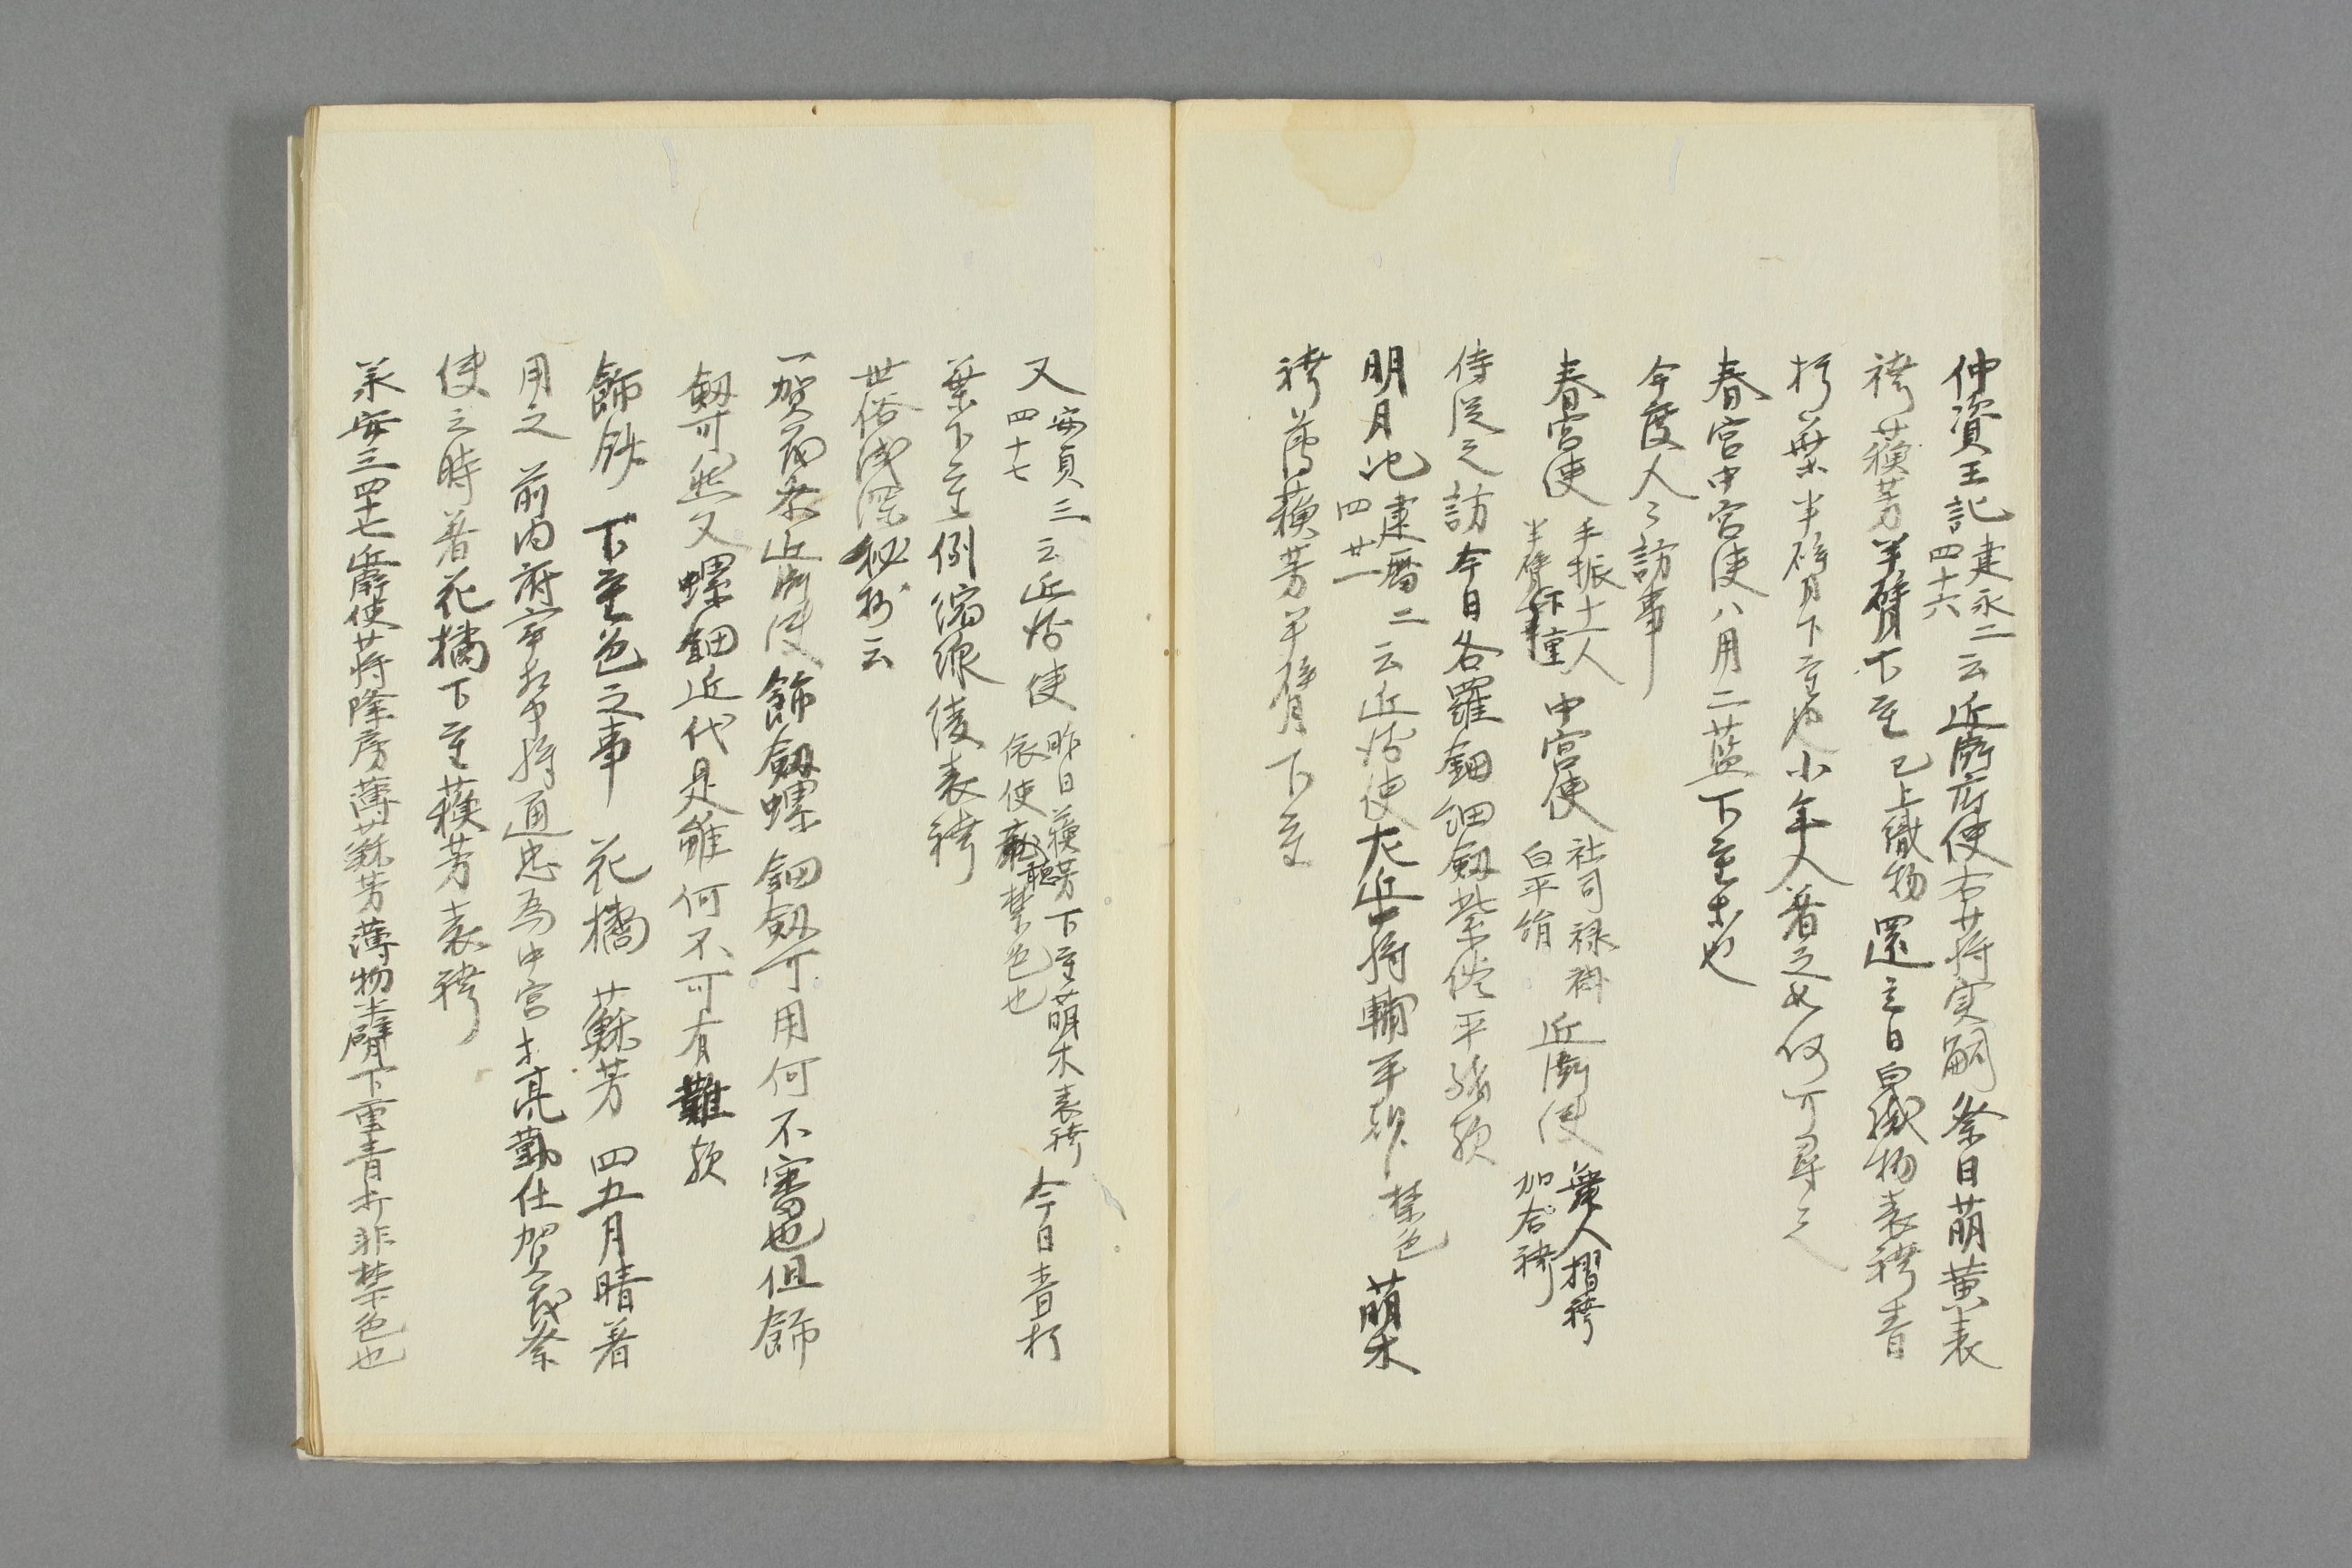 仲資王記建永二四十六云近衛府使右少将実嗣祭日萌黄表
袴蘇芳半臂下重已上織物還立日白織物表袴青
朽葉半臂下重也小年人着之如何可尋之
春宮中宮使ハ用二藍下重等也
今度人々訪事
春宮使手振十二人半臂下重中宮使社司禄褂白平絹近衛使舞人摺袴加合袴
侍従之訪今日各羅鈿細釼紫絰平緒歟
明月記建暦二四廿一云近将使左少将輔平朝臣禁色萌木
袴薄蘇芳半臂下重
又安貞三四十七云近将使昨日蘇芳下重萌木表袴依使聴禁色也今日青朽
葉下重倒滝綾表袴
世俗浅深秘抄云
一賀茂祭近衛使飾釼螺鈿釼可用何不審也但飾
釼可然又螺鈿近代是雖何不可有難歟
餝鈔下重色之事花橘蘇芳四五月晴着
用之前内府宰相中将通忠為中宮权亮勤仕賀茂祭
使之時着花橘下重蘇芳表袴
承安三四十七近衛使少将隆房薄蘇芳薄物半臂下重青朽非禁色也